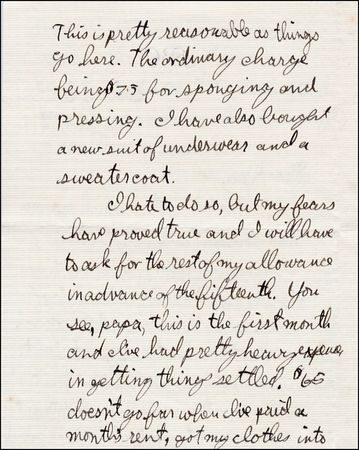 This is pretty reasonable as things
go here. The ordinary charge
being $.75 for sponging and
pressing. I have also bought
a new suit of underwear and a
sweater coat.
I hate to do so, but my fears
have proved true and I will have
to ask for the rest of my allowance
in advance of the fifteenth. You
see, papa, this is the first month
and I've had pretty heavy expense
in getting things settled. $65
doesn't go far when I've paid a
month's rent, got my clothes into